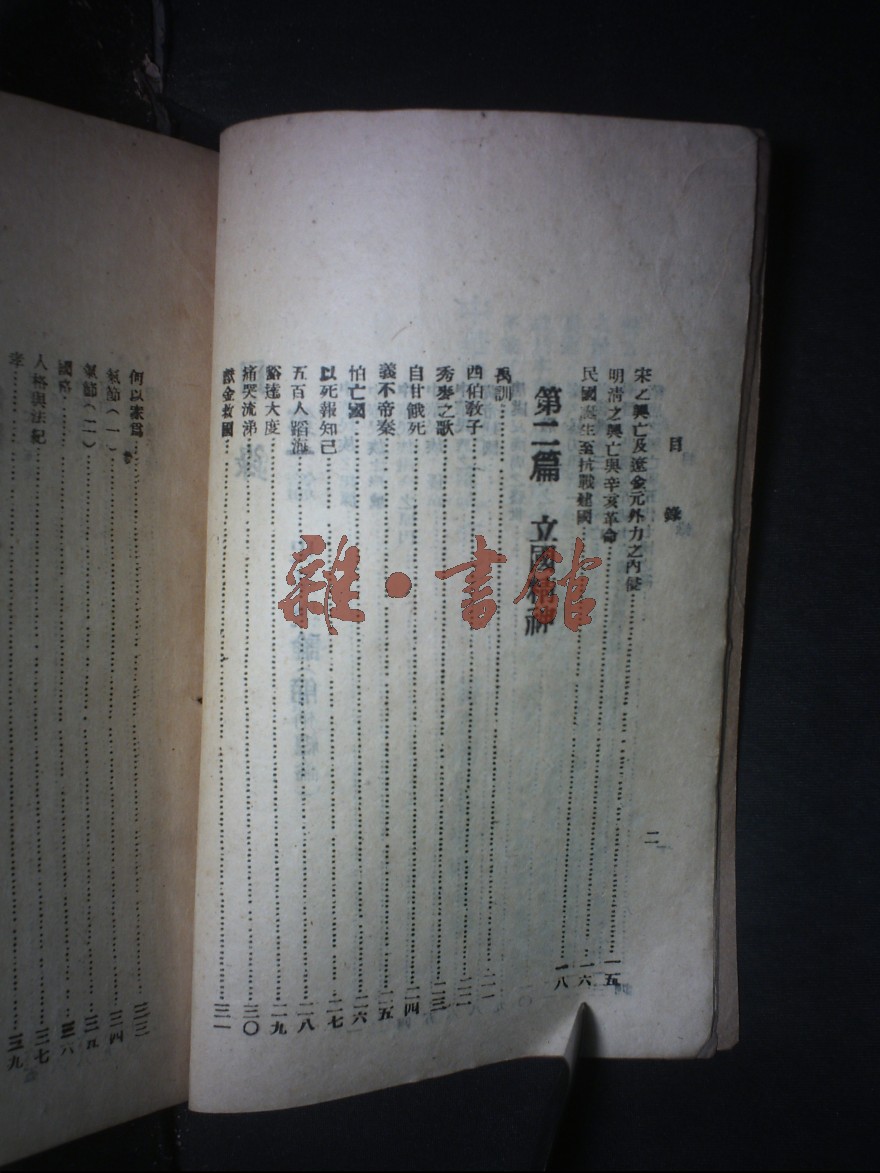 目錄
二
宋之興亡及遼金元外力之內侵 一五
明清之興亡與辛亥革命 一六
民國誕生至抗戰建國 一八
第二篇 立國精神
禹訓 二一
西伯敎子 二二
秀麥之歌 二三
自甘餓死 二四
義不帝秦 二五
怕亡國 二六
以死報知己 二七
五百人蹈海 二八
豁達大度 二九
痛哭流涕 三〇
獻金救國 三一
何以家爲 三三
氣節(一) 三四
氣節(二) 三五
國格 三六
人格與法紀 三七
孝 三九
雜·書館